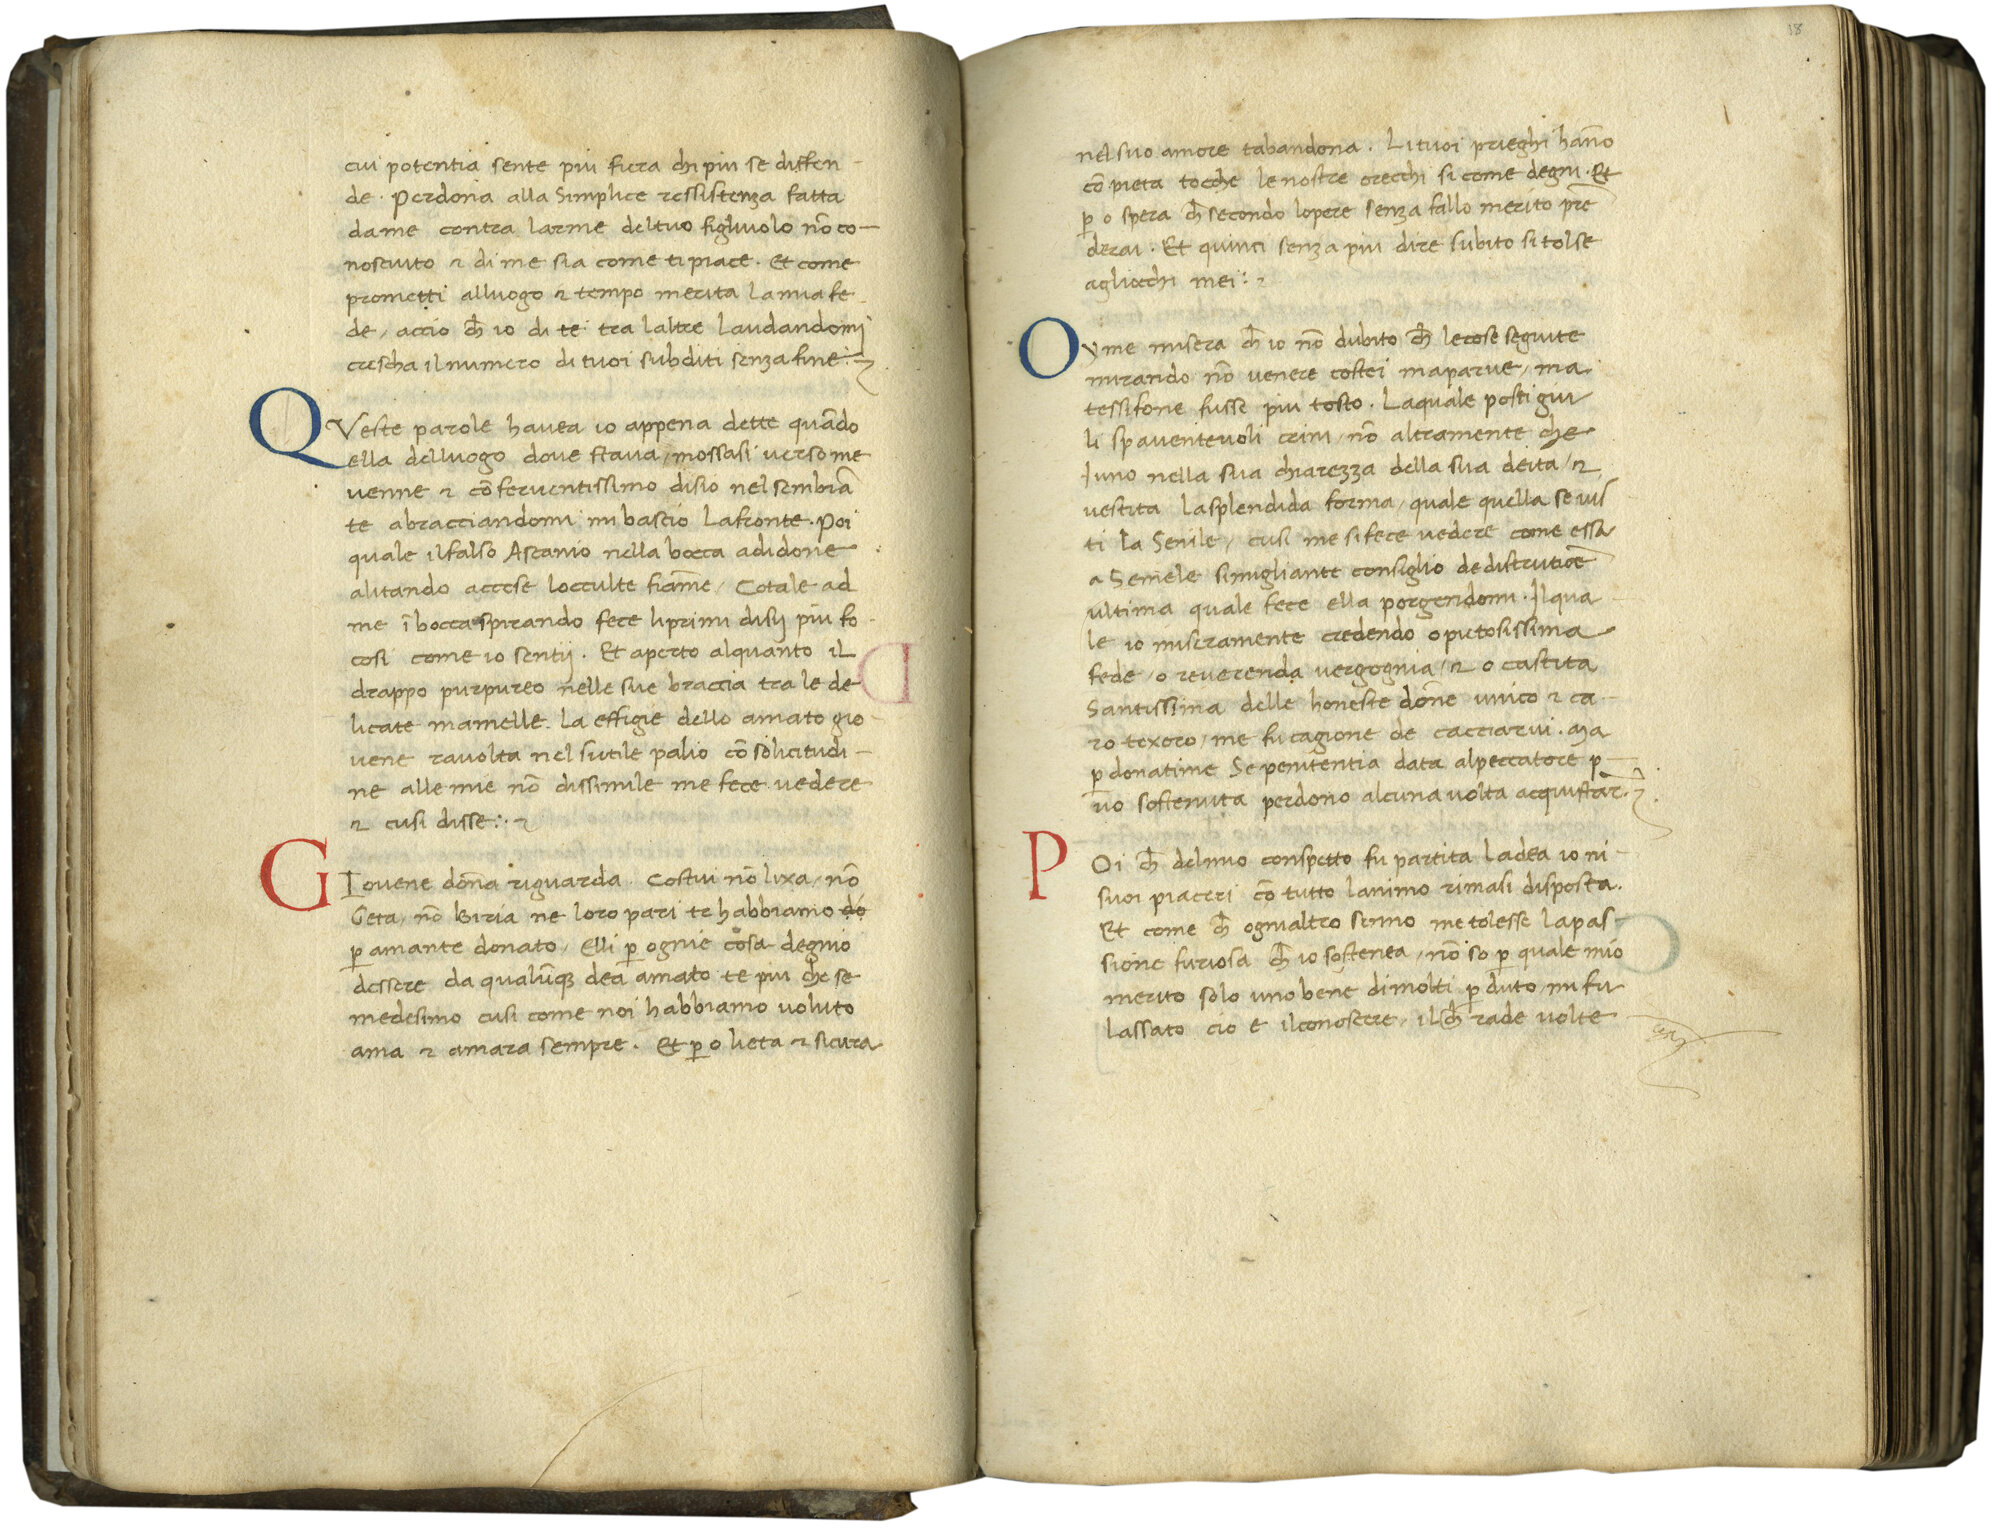 cui potentia sente piu fiera chi piu se diffen-
de. Perdona alla Simplice ressistenza fatta
dame contra larme deltuo figliuolo nō co-
nosciuto & di me sia come ti piace. Et come
prometti alluogo & tempo merita lamia fe-
de, accio ch̄ io di te tra laltre laudandomi
crescha il numero di tuoi subditi senza fine:~
QVeste parole havea io appena dette quādo
ella delluogo dove stava, mossasi verso me
venne & cō ferventissimo disio nel sembiā
te abracciandomi mi bascio la fronte. Poi
quale ilfalso Ascanio nella bocca adidone
alitando accese locculte fiāme, Cotale ad
me ī bocca spirando fece li primi disij piu fo-
cosi come io sentij. Et aperto alquanto il
drappo purpureo nelle sue braccia tra le de
licate mamelle. La effigie dello amato gio-
vene ravolta nel sutile palio cō solicitudi-
ne alle mie nō dissimile me fece vedere
& cusi disse:~
GIovene dōna riguarda. Costui nō lixa, nō
Geta, nō Biria ne loro pari te habbiamo do
p̱ amante donato, Elli p̱ ognie cosa degnio
dessere da qualūq; dea amato te piu che se
medesimo cusi come noi habbiamo voluto
ama & amara sempre. Et p̱ o lieta & sicura
18
nel suo amore tabandona. Li tuoi prieghi hāno
cō pieta tocche le nostre orecchi si come degni. Et
p̱ o spera ch̄ secondo lopere senza fallo merito prē
derai. Et quinci senza piu dire subito si tolse
agliocchi mei:~
OYme misera ch̄ io nō dubito ch̄ le cose seguite
mirando nō venere costei maparve, ma
tessifone fusse piu tosto. Laquale posti giu
li spaventevoli crini, nō altramente che
Iuno nella sua chiarezza della sua deita, &
vestita la splendida forma, quale quella se vis
ti la Senile, cusi me si fece vedere come essa
a Semele simigliante consiglio de distrutiōe
ultima quale fece ella porgendomi. Ilqua-
le io miseramente credendo o pietosissima
fede, o reverenda vergognia, & o castita
Santissima delle honeste dōne unico & ca-
ro texoro, me fu cagione de cacciarvi. Ma
p̱donatime Se penitentia data alpeccatore p̱-
vo sostenuta perdono alcuna volta acquistar.
POi ch̄ delmio conspetto fu partita ladea io ni-
suoi piaceri cō tutto lanimo rimasi disposta.
Et come ch̄ ognialtro senno me tolesse la pas-
sione furiosa ch̄ io sostenea, nō so p̱ quale mio
merito solo uno bene di molti p̱duto, mi fu
lassato cio e ilconoscere, ilch̄ rade volte